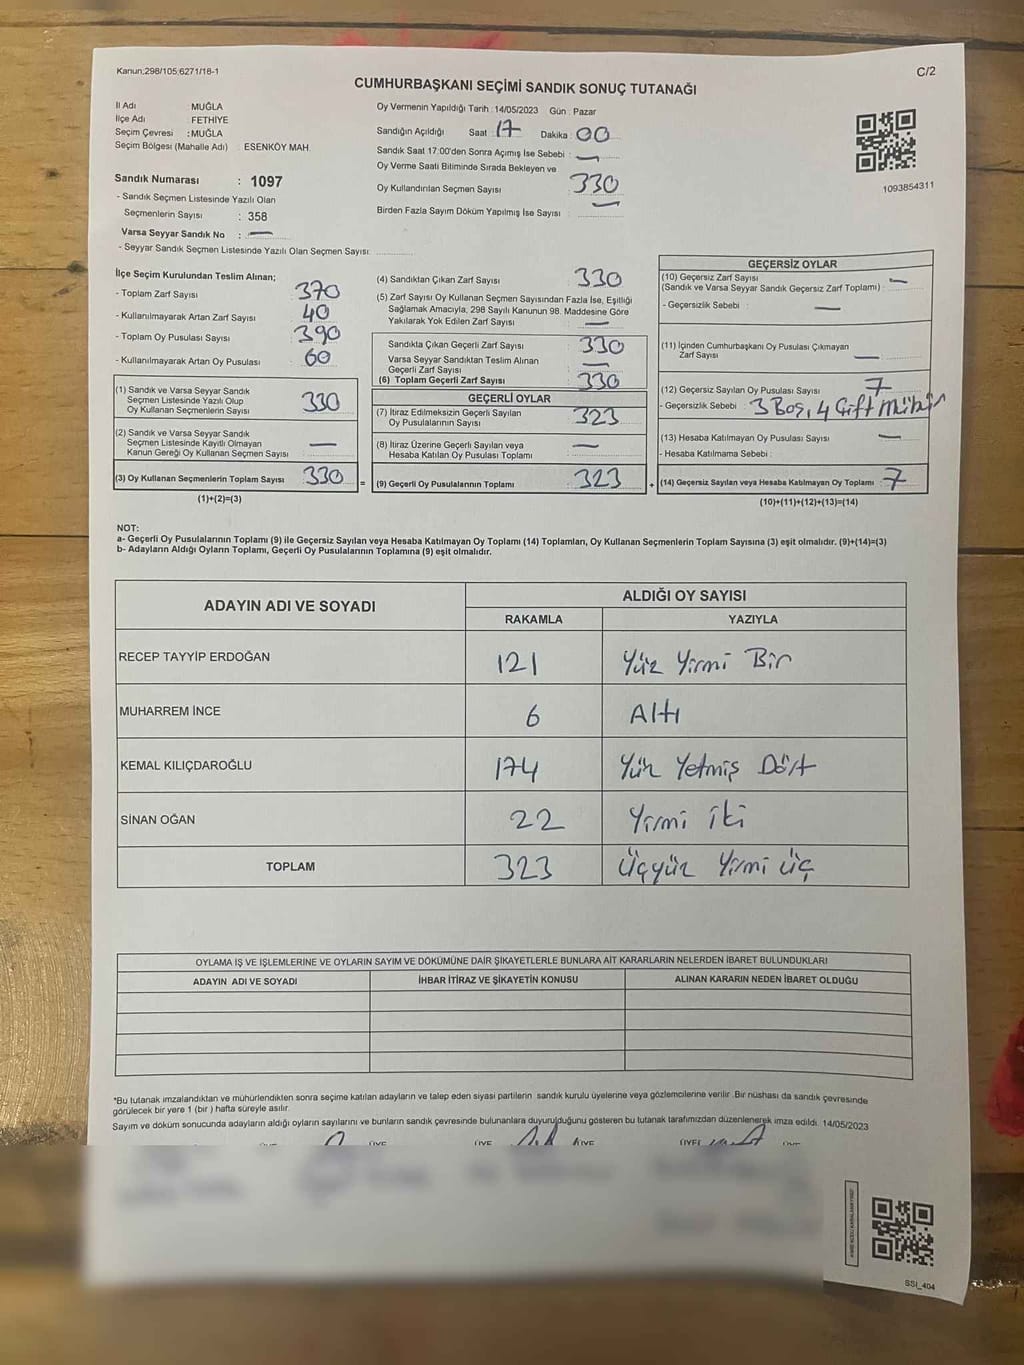 Kanun;298/105;6271/18-1
C/2
CUMHURBAŞKANI SEÇİMİ SANDIK SONUÇ TUTANAĞI
İl Adı : MUĞLA
İlçe Adı : FETHİYE
Seçim Çevresi : MUĞLA
Seçim Bölgesi (Mahalle Adı) : ESENKÖY MAH.
Sandık Numarası : 1097
- Sandık Seçmen Listesinde Yazılı Olan
Seçmenlerin Sayısı : 358
Varsa Seyyar Sandık No : —
- Seyyar Sandık Seçmen Listesinde Yazılı Olan Seçmen Sayısı:
Oy Vermenin Yapıldığı Tarih : 14/05/2023 Gün : Pazar
Sandığın Açıldığı Saat : 17 Dakika : 00
Sandık Saat 17:00'den Sonra Açımış İse Sebebi : —
Oy Verme Saati Bitiminde Sırada Bekleyen ve
Oy Kullandırılan Seçmen Sayısı 330
Birden Fazla Sayım Döküm Yapılmış İse Sayısı : —
1093854311
İlçe Seçim Kurulundan Teslim Alınan;
- Toplam Zarf Sayısı : 370
- Kullanılmayarak Artan Zarf Sayısı : 40
- Toplam Oy Pusulası Sayısı : 390
- Kullanılmayarak Artan Oy Pusulası : 60
(1) Sandık ve Varsa Seyyar Sandık
Seçmen Listesinde Yazılı Olup
Oy Kullanan Seçmenlerin Sayısı 330
(2) Sandık ve Varsa Seyyar Sandık
Seçmen Listesinde Kayıtlı Olmayan
Kanun Gereği Oy Kullanan Seçmen Sayısı —
(3) Oy Kullanan Seçmenlerin Toplam Sayısı 330 =
(1)+(2)=(3)
(4) Sandıktan Çıkan Zarf Sayısı 330
(5) Zarf Sayısı Oy Kullanan Seçmen Sayısından Fazla İse, Eşitliği
Sağlamak Amacıyla, 298 Sayılı Kanunun 98. Maddesine Göre
Yakılarak Yok Edilen Zarf Sayısı —
Sandıkta Çıkan Geçerli Zarf Sayısı 330
Varsa Seyyar Sandıktan Teslim Alınan
Geçerli Zarf Sayısı —
(6) Toplam Geçerli Zarf Sayısı 330
GEÇERLİ OYLAR
(7) İtiraz Edilmeksizin Geçerli Sayılan
Oy Pusulalarının Sayısı 323
(8) İtiraz Üzerine Geçerli Sayılan veya
Hesaba Katılan Oy Pusulası Toplamı —
(9) Geçerli Oy Pusulalarının Toplamı 323 +
GEÇERSİZ OYLAR
(10) Geçersiz Zarf Sayısı
(Sandık ve Varsa Seyyar Sandık Geçersiz Zarf Toplamı) : —
- Geçersizlik Sebebi : —
(11) İçinden Cumhurbaşkanı Oy Pusulası Çıkmayan
Zarf Sayısı —
(12) Geçersiz Sayılan Oy Pusulası Sayısı 7
- Geçersizlik Sebebi : 3 Boş, 4 Çift Mühür
(13) Hesaba Katılmayan Oy Pusulası Sayısı —
- Hesaba Katılmama Sebebi :
(14) Geçersiz Sayılan veya Hesaba Katılmayan Oy Toplamı 7
(10)+(11)+(12)+(13)=(14)
NOT:
a- Geçerli Oy Pusulalarının Toplamı (9) ile Geçersiz Sayılan veya Hesaba Katılmayan Oy Toplamı (14) Toplamları, Oy Kullanan Seçmenlerin Toplam Sayısına (3) eşit olmalıdır. (9)+(14)=(3)
b- Adayların Aldığı Oyların Toplamı, Geçerli Oy Pusulalarının Toplamına (9) eşit olmalıdır.
ADAYIN ADI VE SOYADI ALDIĞI OY SAYISI
RAKAMLA YAZIYLA
RECEP TAYYİP ERDOĞAN 121 Yüz Yirmi Bir
MUHARREM İNCE 6 Altı
KEMAL KILIÇDAROĞLU 174 Yüz Yetmiş Dört
SİNAN OĞAN 22 Yirmi iki
TOPLAM 323 Üçyüz Yirmi üç
OYLAMA İŞ VE İŞLEMLERİNE VE OYLARIN SAYIM VE DÖKÜMÜNE DAİR ŞİKAYETLERLE BUNLARA AİT KARARLARIN NELERDEN İBARET BULUNDUKLARI
ADAYIN ADI VE SOYADI İHBAR İTİRAZ VE ŞİKAYETİN KONUSU ALINAN KARARIN NEDEN İBARET OLDUĞU
*Bu tutanak imzalandıktan ve mühürlendikten sonra seçime katılan adayların ve talep eden siyasi partilerin sandık kurulu üyelerine veya gözlemcilerine verilir. Bir nüshası da sandık çevresinde
görülecek bir yere 1 (bir ) hafta süreyle asılır.
Sayım ve döküm sonucunda adayların aldığı oyların sayılarını ve bunların sandık çevresinde bulunanlara duyurulduğunu gösteren bu tutanak tarafımızdan düzenlenerek imza edildi. 14/05/2023
ÜYE ÜYE ÜYE ÜYE
SSI_404